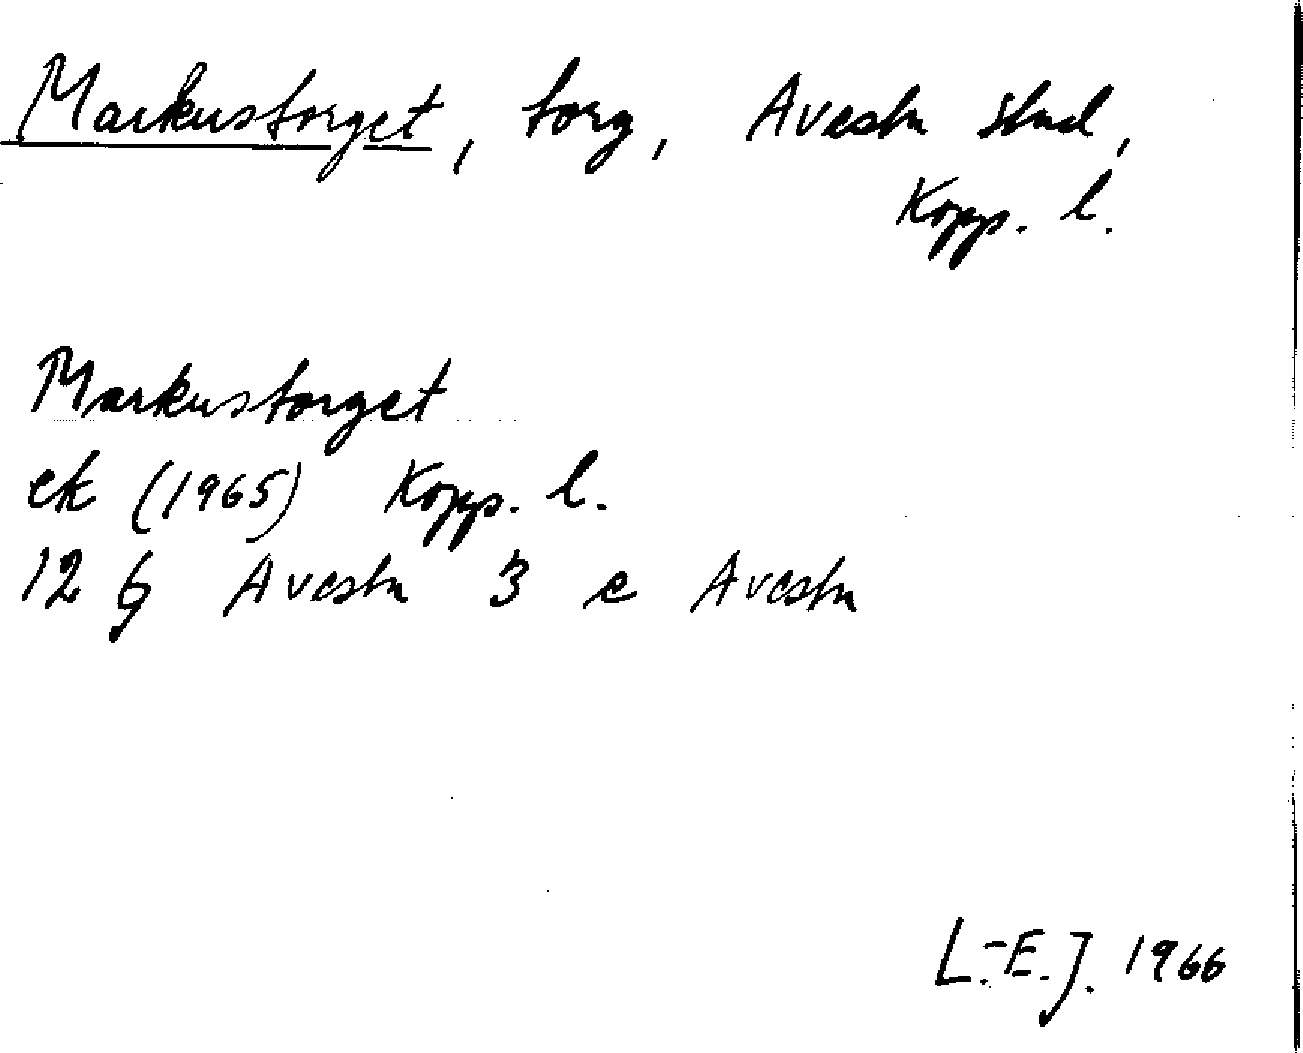 Markustorget, torg, Avesta stad,
Kopp. l.
Markustorget
ek (1965) Kopp. l.
12 G Avesta 3 e Avesta
L.-E.J. 1966